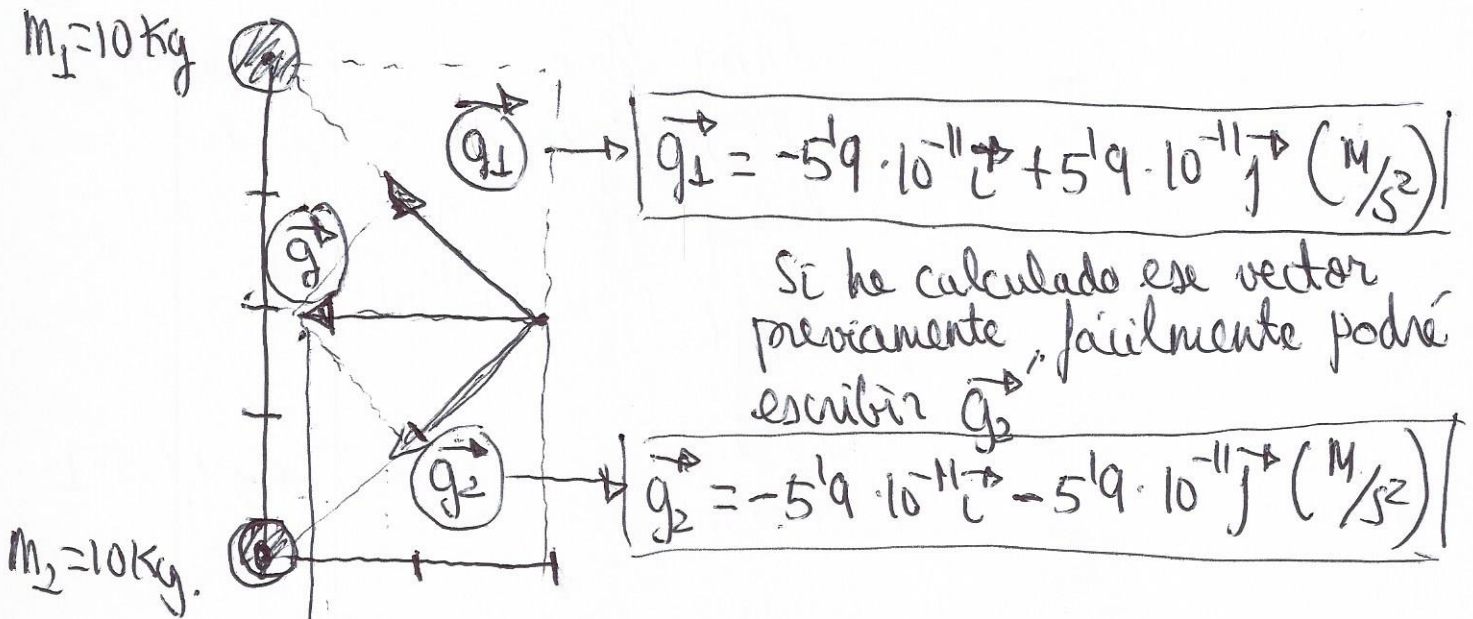 M₁=10 Kg
g₁⃗
g₁⃗ = -5'9·10⁻¹¹ i⃗ + 5'9·10⁻¹¹ j⃗ (M/s²)
g⃗
Si he calculado ese vector
previamente, fácilmente podré
escribir g₂⃗
g₂⃗
g₂⃗ = -5'9·10⁻¹¹ i⃗ - 5'9·10⁻¹¹ j⃗ (M/s²)
M₂=10Kg.